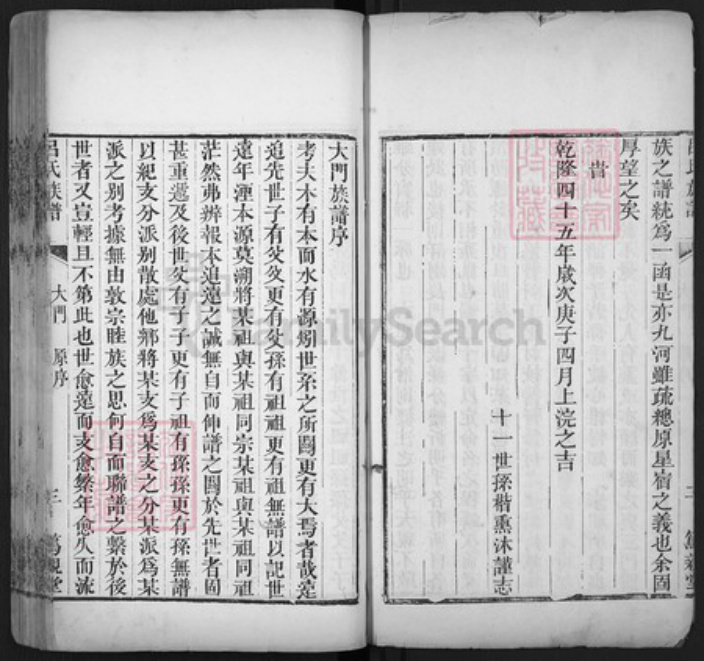 族之譜統爲一函是亦九河雖疏總原星宿之義也余固
厚望之矣
旹
乾隆四十五年歲次庚子四月上浣之吉
十一世孫楷熏沐謹志
大門族譜序
考夫木有本而水有源矧世系之所關更有大焉者哉遠
追先世子有父父更有父孫有祖祖更有祖無譜以記世
遠年湮本源莫溯將某祖與某祖同宗某祖與某祖同祖
茫然弗辨報本追遠之誠無自而伸譜之關於先世者固
甚重遞及後世父有子子更有子祖有孫孫更有孫無譜
以紀支分派別散處他鄉將某支爲某支之分某派爲某
派之別考據無由敦宗睦族之思何自而聯譜之繫於後
世者又豈輕且不第此也世愈遠而支愈繁年愈久而流
呂氏族譜
大門
原序
三
篤親堂
FamilySearch